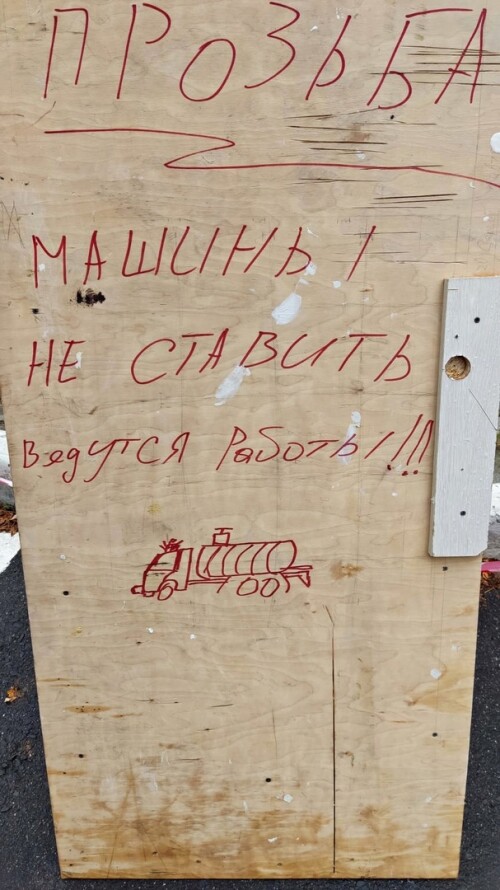 ПРОЗЬБА
МАШИНЫ
НЕ СТАВИТЬ
Ведутся Работы!!!